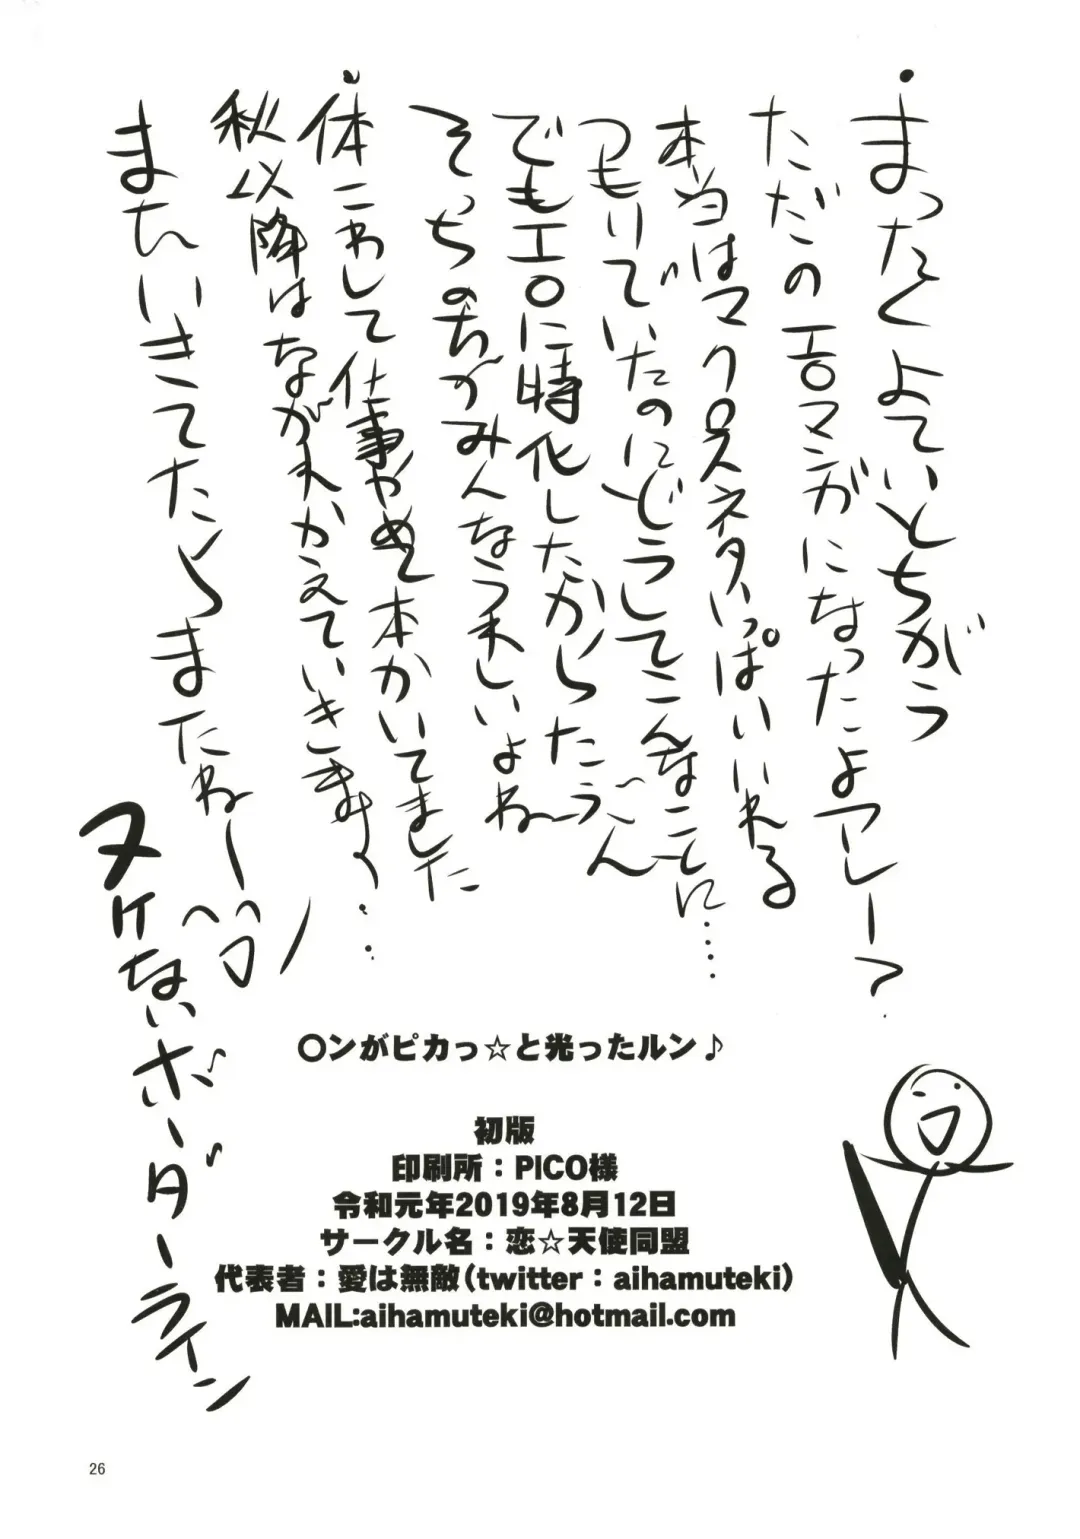 ・まったくよていとちがう
ただのエロマンガになったよアレー？
本当はマクロスネタいっぱいいれる
つもりでいたのにどうしてこんなことに……
でもエロに特化したからたぶん
そっちの方がみんなうれしいよねー
・体こわして仕事やめて本かいてました
秋以降はながれかえていきます……
またいきてたらまたねー
ヌケないボーダーライン
〇ンがピカっ☆と光ったルン♪
初版
印刷所：PICO様
令和元年2019年8月12日
サークル名：恋☆天使同盟
代表者：愛は無敵（twitter：aihamuteki）
MAIL:aihamuteki@hotmail.com
26